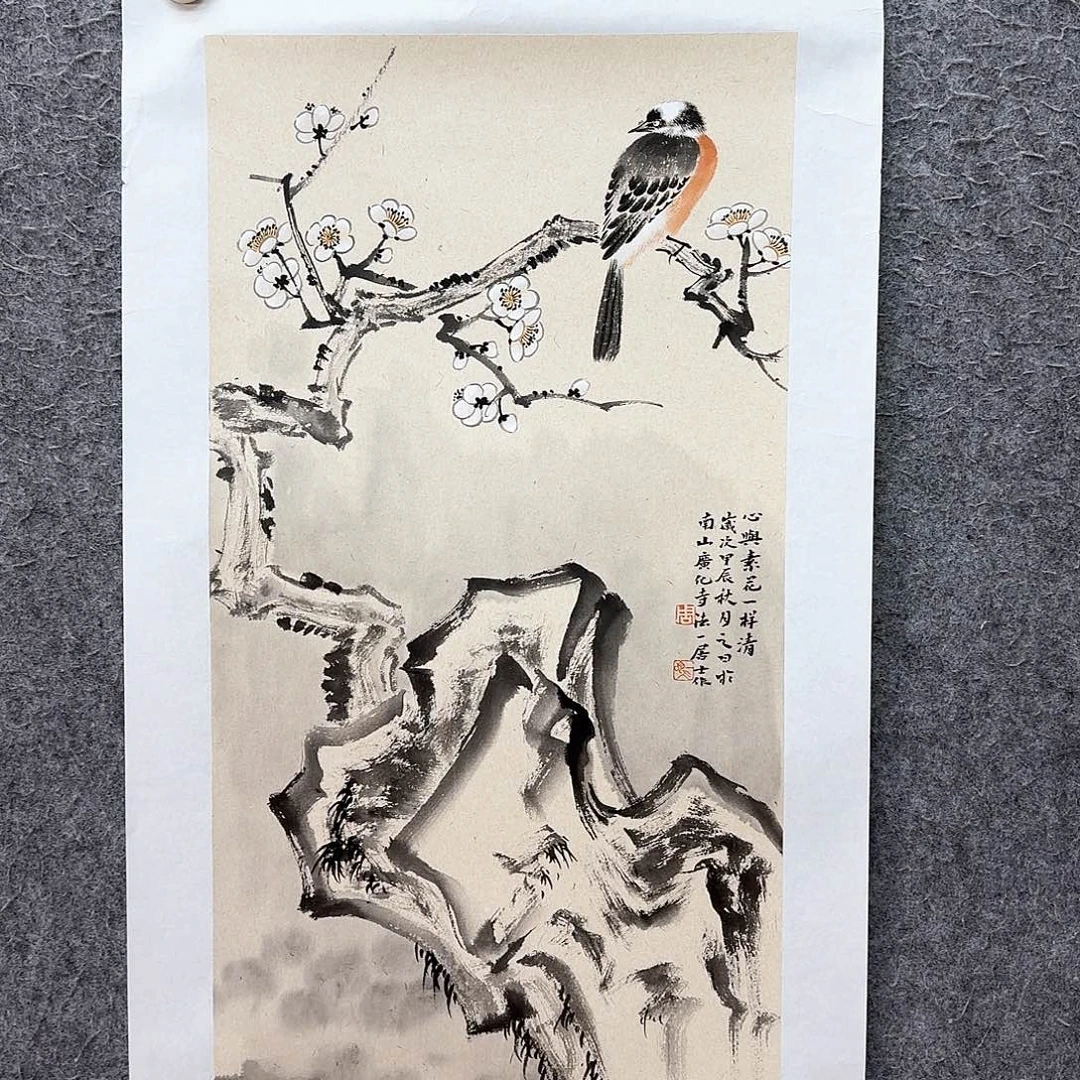 心與素花一样清
歲次甲辰秋月之日於
南山廣化寺法一居士作